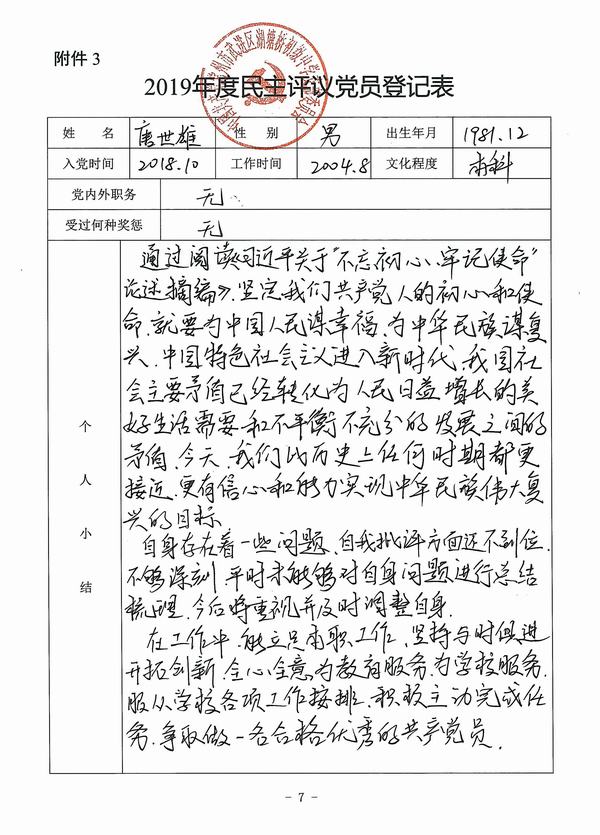 附件 3
2019年度民主评议党员登记表
姓 名 唐世雄 性 别 男 出生年月 1981.12
入党时间 2018.10 工作时间 2004.8 文化程度 本科
党内外职务 无
受过何种奖惩 无
个人小结
通过阅读《习近平关于"不忘初心、牢记使命"
论述摘编》,坚定我们共产党人的初心和使
命,就要为中国人民谋幸福,为中华民族谋复
兴,中国特色社会主义进入新时代,我国社
会主要矛盾已经转化为人民日益增长的美
好生活需要和不平衡不充分的发展之间的
矛盾,今天,我们比历史上任何时期都更
接近,更有信心和能力实现中华民族伟大复
兴的目标
自身存在着一些问题,自我批评方面还不到位,
不够深刻,平时未能够对自身问题进行总结
梳理,今后将重视并及时调整自身.
在工作中,能立足本职工作,坚持与时俱进
开拓创新,全心全意为教育服务,为学校服务,
服从学校各项工作安排,积极主动完成任
务,争取做一名合格优秀的共产党员.
- 7 -